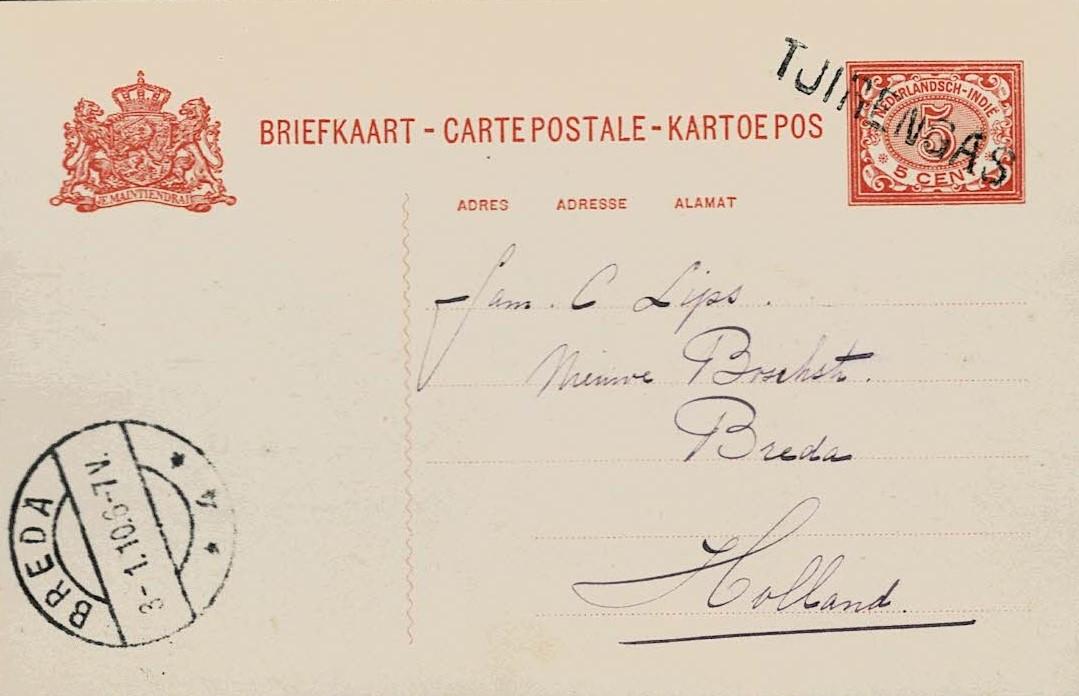 TJITENGAS
NEDERLANDSCH-INDIE
5
5 CENT
JE MAINTIENDRAI
BRIEFKAART - CARTE POSTALE - KARTOE POS
ADRES ADRESSE ALAMAT
Fam. C Lips.
Nieuwe Boschstr.
Breda
Holland.
BREDA
3-1.10.6-7V.
* 4 *